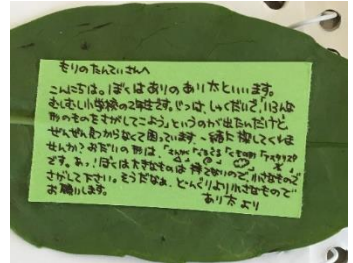 もりのたんていさんへ
こんにちは。ぼくはありのあり太といいます。
むしむし小学校の2年生です。じつは、しゅくだいで、「いろんな
形のものをさがしてこよう」というのが出たんだけど、
ぜんぜん見つからなくて困っています。一緒に探してくれま
せんか?おだいの形は「さんかく」「まる」
です。あっ!ぼくは大きなものは持てないので、小さなもので
さがして下さい。そうだなぁ、どんぐりより小さなもので
お願いします。
あり太より